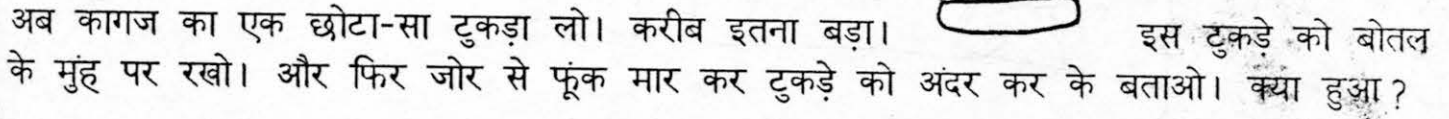 अब कागज का एक छोटा-सा टुकड़ा लो। करीब इतना बड़ा। इस टुकड़े को बोतल
के मुंह पर रखो। और फिर जोर से फूंक मार कर टुकड़े को अंदर कर के बताओ। क्या हुआ?